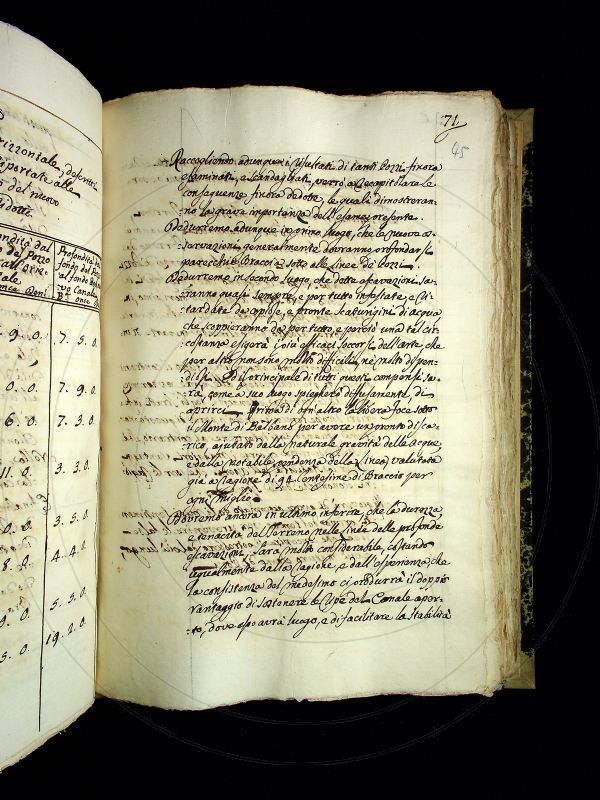 izzontale, descritti
riportate alle
del nuovo
ridotti.
9. 0.
7. 5. 0.
0. 0.
7. 9. 0.
6. 0.
7. 3. 0.
11. 0.
3. 3. 0.
0. 0.
3. 5. 0.
8. 0.
4. 4. 0.
9. 0.
5. 5. 0.
5. 0.
19. 2. 0.
71
45
Raccogliendo adunque i risultati di tanti Pozzi finora
esaminati, e scandagliati, però a recapitolare le
conseguenze finora dedotte, le quali dimostreran-
-no la grave importanza dell'esame presente.
Dedurremo adunque in primo luogo, che le nuove es-
-cavazioni generalmente dovranno profondarsi
parecchie Braccia sotto alle linee de' Pozzi.
Dedurremo in secondo luogo, che dette escavazioni sa-
-ranno quasi sempre, e per tutto infestate, e ri-
-tardate da copiose, e pronte scaturigini di acqua
che scoppieranno da per tutto, e perciò una tal cir-
-costanza esigerà i più efficaci soccorsi dell'arte, che
per altro non sono molto difficili, nè molto dispen-
-diosi. Ed il principale di tutti questi compensi sa-
-rà, come a suo luogo spiegherò diffusamente, di
aprirci prima di ogn'altro la libera foce sotto
il Monte di Balbano per avere un pronto disca-
-rico, ajutato dalla naturale gravità delle acque,
e dalla notabile pendenza della linea, valutata
già a ragione di 94 Centesime di Braccio per
ogni Miglio.
Dedurremo ancora in ultimo inferire, che la durezza,
e tenacità del Terreno nelle linee delle profonde
escavazioni, sarà molto considerabile, costando
ugualmente dalla ragione, e dall'esperienza, che
la consistenza del medesimo ci produrrà il doppio
vantaggio di sostenere le ripe del Canale aper-
-to, dove esso avrà luogo, e di facilitare la stabilità